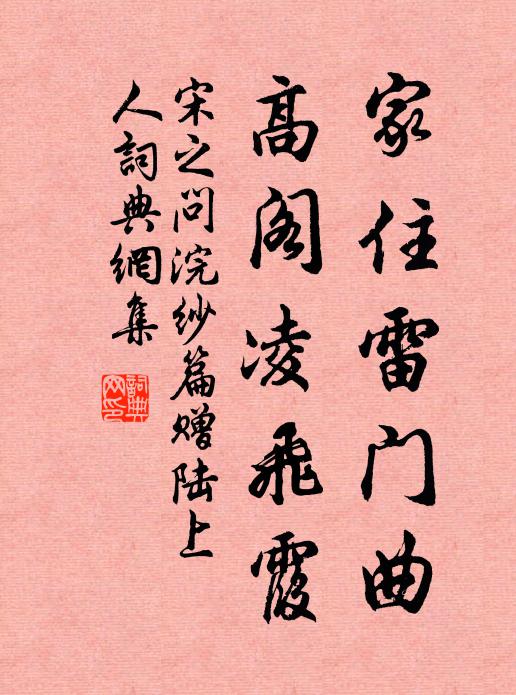 家住雷门曲
高阁凌飛霞
宋之问浣纱篇赠陆上
人詞典網集
詞典網印